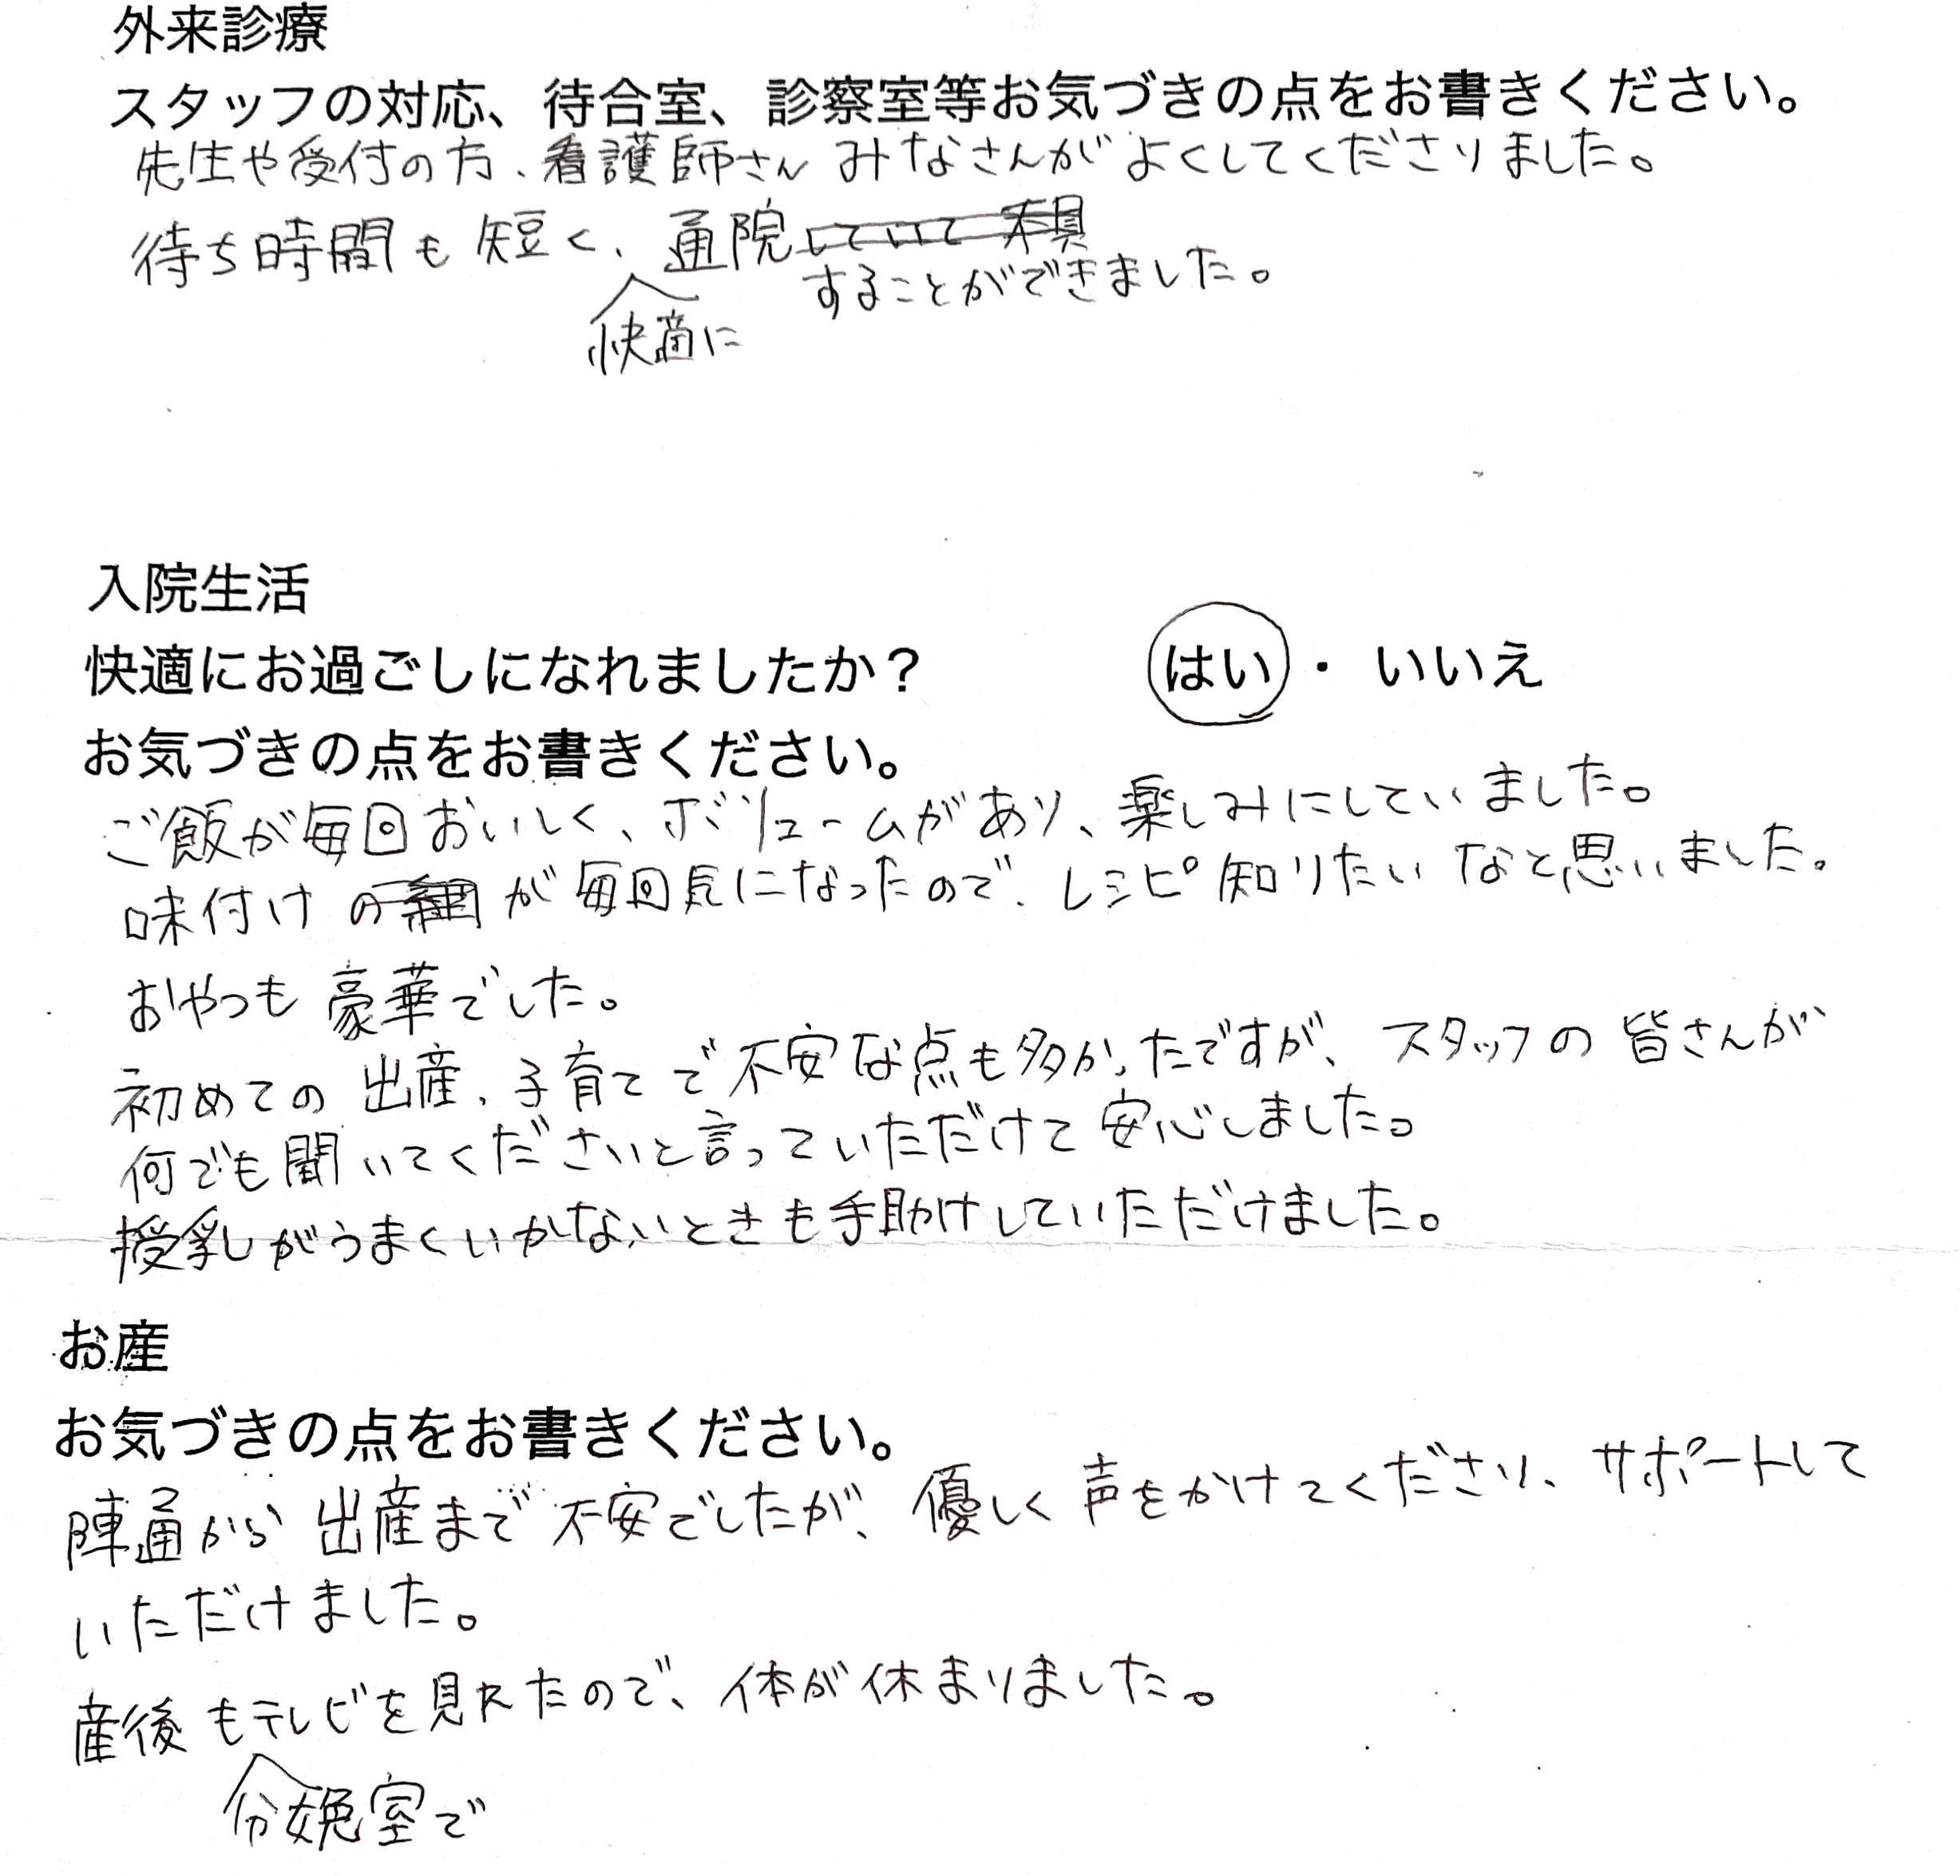 外来診療
スタッフの対応、待合室、診察室等お気づきの点をお書きください。
先生や受付の方、看護師さん みなさんがよくしてくださりました。
待ち時間も短く、快適に通院することができました。
入院生活
快適にお過ごしになれましたか？ はい・いいえ
お気づきの点をお書きください。
ご飯が毎回おいしく、ボリュームがあり、楽しみにしていました。
味付けが毎回気になったので、レシピ知りたいなと思いました。
おやつも豪華でした。
初めての出産、子育てで不安な点も多かったですが、スタッフの皆さんが
何でも聞いてくださいと言っていただけて安心しました。
授乳がうまくいかないときも手助けしていただけました。
お産
お気づきの点をお書きください。
陣通から出産まで不安でしたが、優しく声をかけてくださり、サポートして
いただけました。
産後も分娩室でテレビを見れたので、体が休まりました。